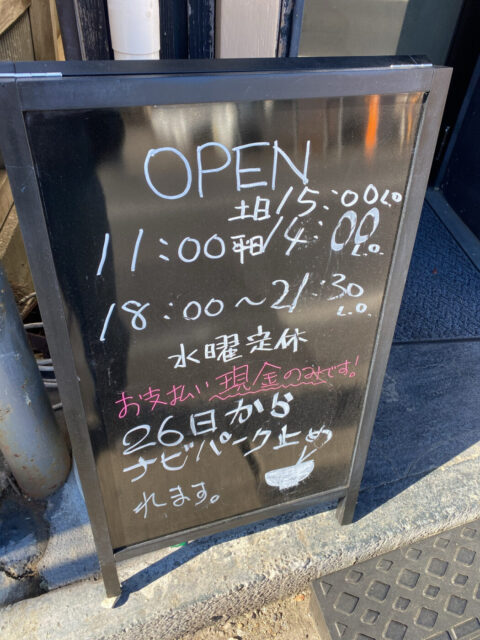 OPEN
土日 15:00 L.O
11:00 平日 14:00 L.O.
18:00〜21:30 L.O.
水曜定休
お支払い現金のみです!
26日から
ナビパーク止め
れます。